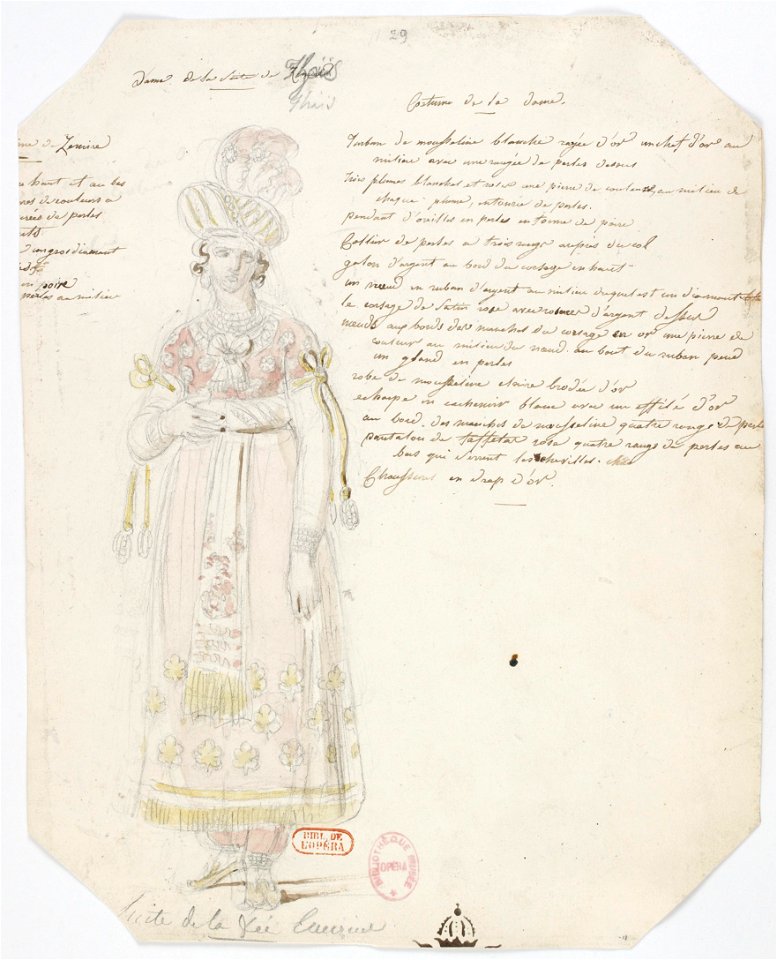 29
Dame de la Suite de
Thaïs
Costume de la dame.
Turban de mousseline blanche rayée d'or un chef d'or au
milieu avec une rangée de perles dessus
trois plumes blanches et roses une pierre de couleurs, au milieu de
chaque plume, entourée de perles.
pendant d'oreilles en perles en forme de poire
Collier de perles a trois rangs auprès du col
galon d'argent au bord du corsage en haut
un nœud en ruban d'argent au milieu duquel est un diamant
le corsage de Satin rose avec d'argent dessus
nœuds aux bords des manches du corsage en or une pierre de
couleur au milieu du nœud. au bout du ruban pend
un gland en perles
robe de mousseline claire brodée d'or
echarpe en cachemir blanc avec un effilé d'or
au bord des manches de mousseline quatre rangs de perles
pantalon de taffetas rose quatre rangs de perles au
bas qui serrent les chevilles.
Chaussons en drap d'or.
de Zemire
haut et au bas
de couleurs a
de perles
gros diamant
en poire
perles au milieu
BIBL. DE
L'OPÉRA
BIBLIOTHÈQUE MUSÉE
OPÉRA
Suite de la Fée